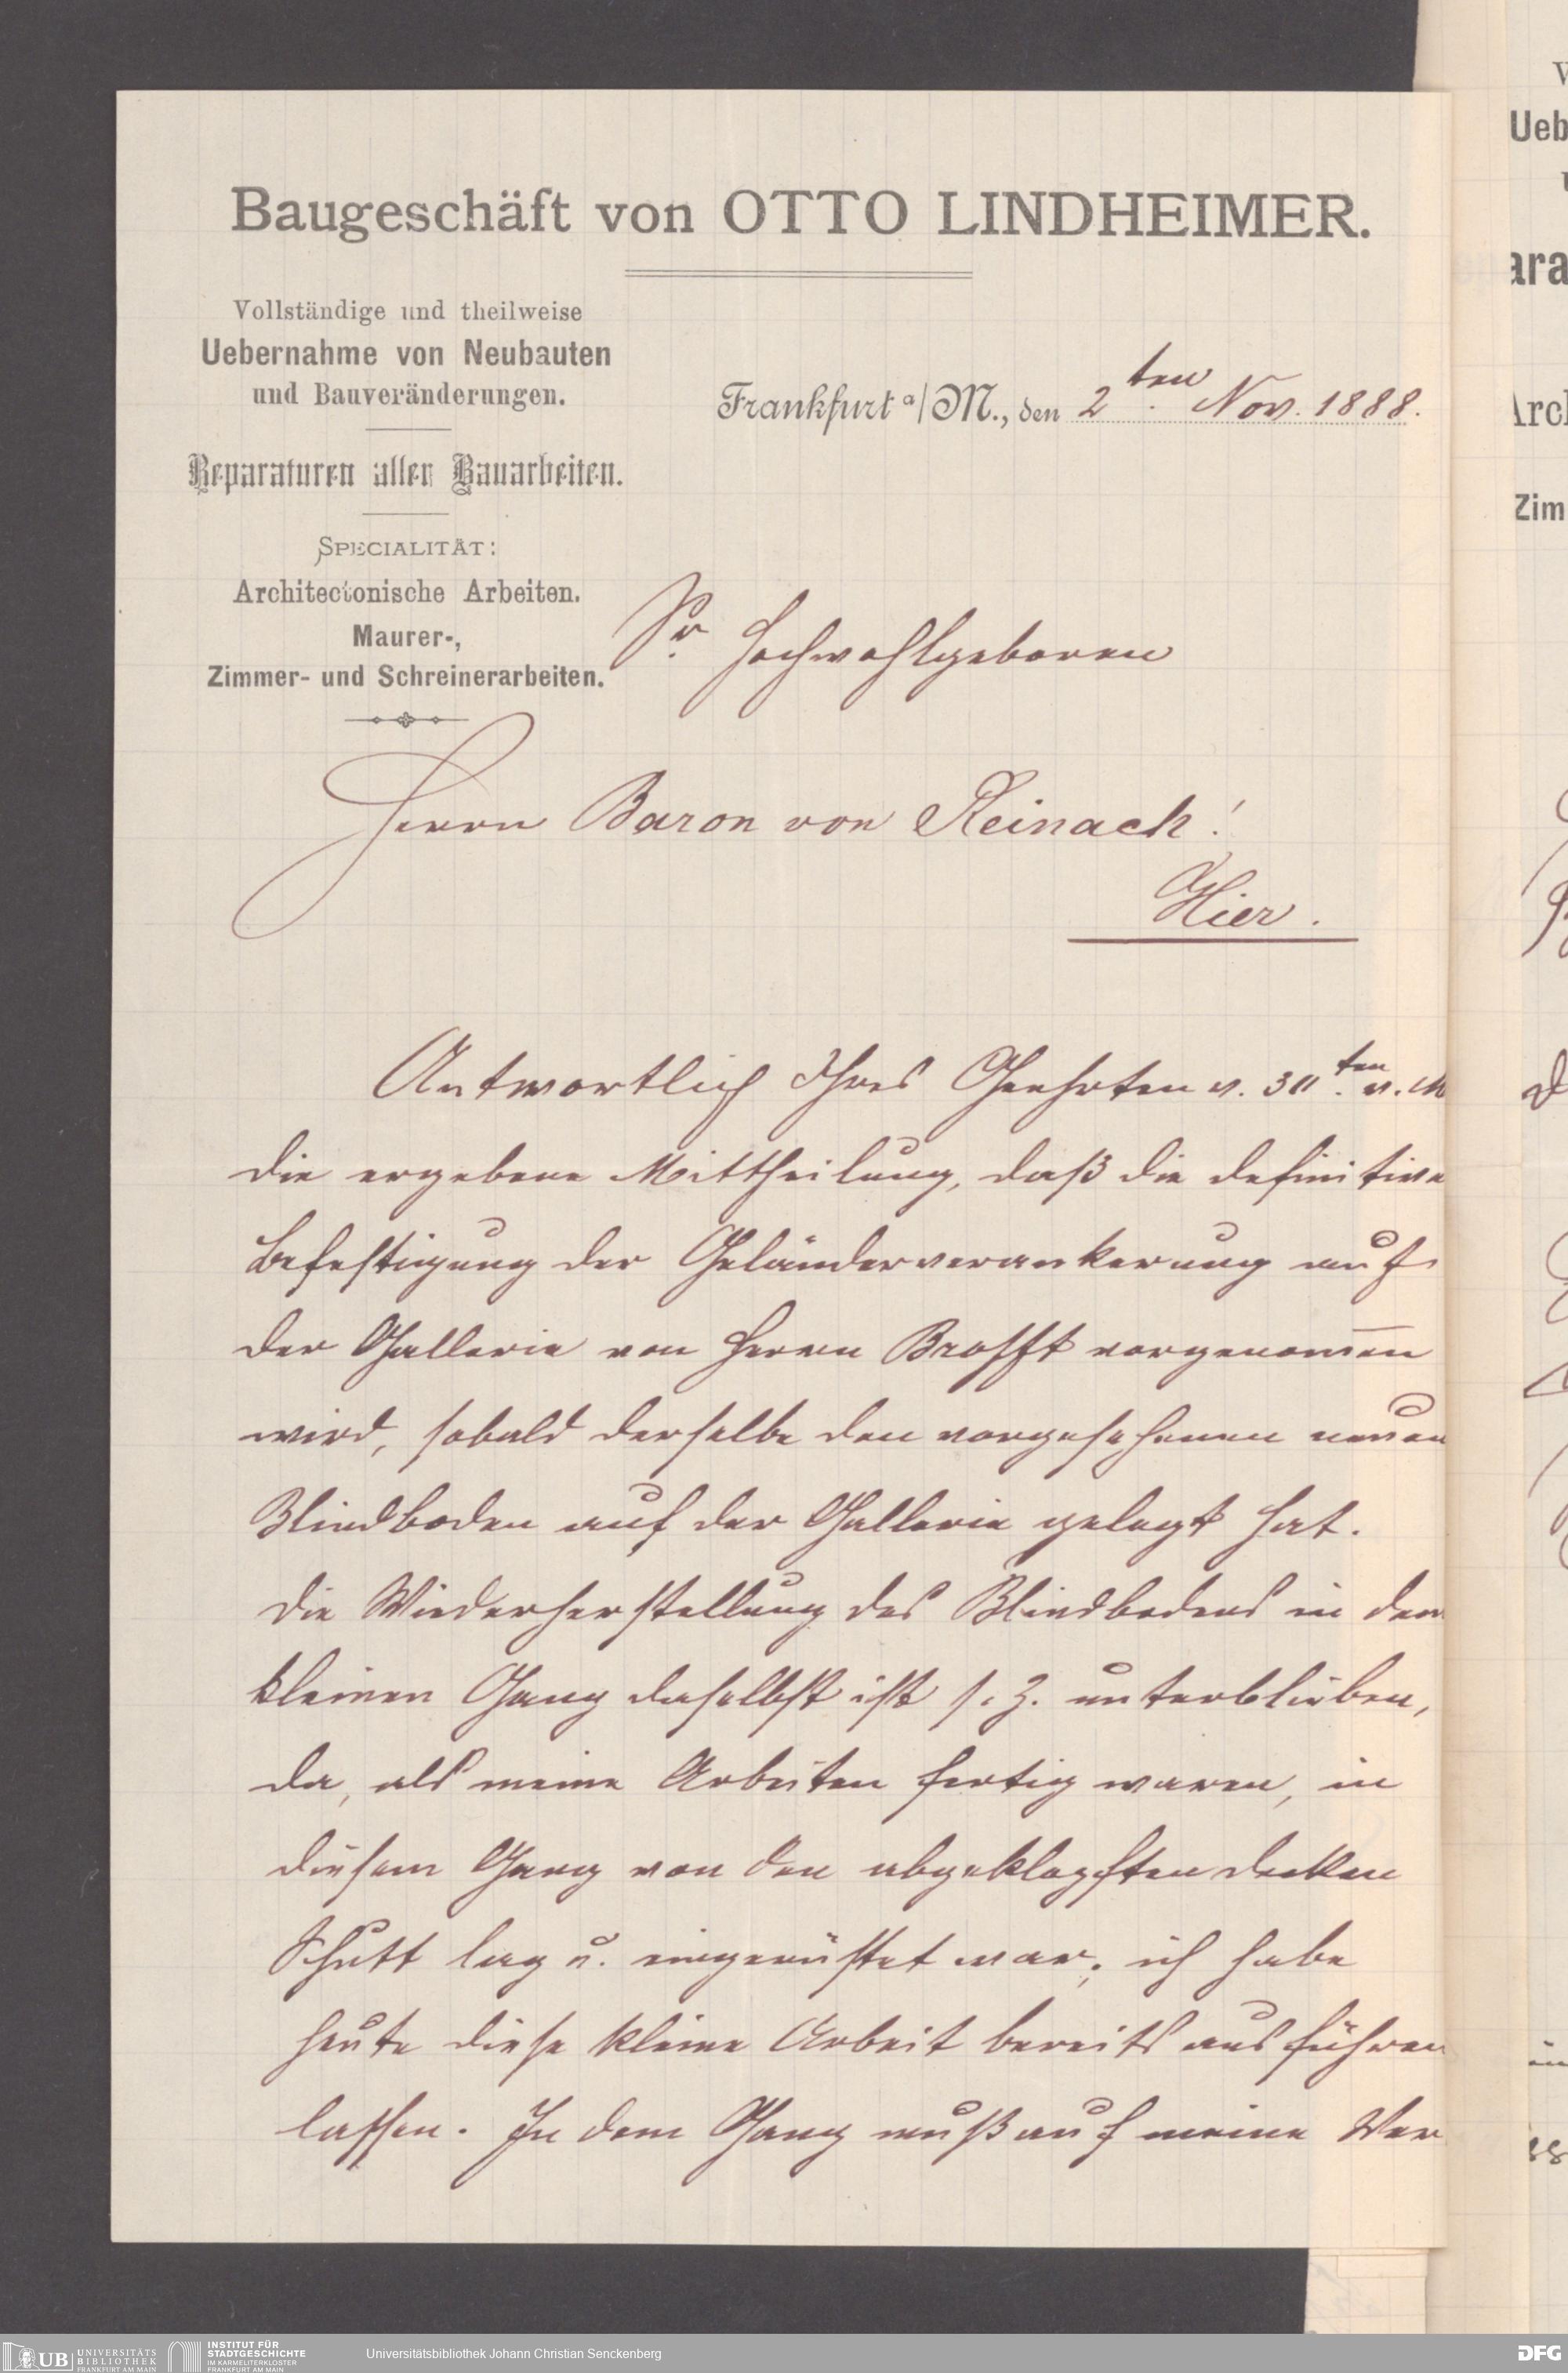 Baugeschäft von OTTO LINDHEIMER.
Vollständige und theilweise
Uebernahme von Neubauten
und Bauveränderungen.
Reparaturen aller Bauarbeiten.
SPECIALITÄT:
Architectonische Arbeiten.
Maurer-,
Zimmer- und Schreinerarbeiten.
Frankfurt a/M., den 2ten Nov. 1888.
Sr. Hochwohlgeboren
Herrn Baron von Reinach!
Hier.
Antwortlich Ihres Geehrten v. 30ten v. M
die ergebene Mittheilung, daß die definitive
Befestigung der Geländerverankerung auf
der Gallerie von Herrn Brofft vorgenom̅en
wird, sobald derselbe den vorgesehenen neuen
Blindboden auf der Gallerie gelegt hat.
Die Wiederherstellung des Blindbodens in dem
kleinen Gang daselbst ist s. Z. unterblieben,
da, als meine Arbeiten fertig waren, in
diesem Gang von den abgeklopften Decken
Schutt lag u. eingerüstet war; ich habe
heute diese kleine Arbeit bereits ausführen
lassen. In dem Gang muß auf meine Ver
UB UNIVERSITÄTS
BIBLIOTHEK
FRANKFURT AM MAIN
INSTITUT FÜR
STADTGESCHICHTE
IM KARMELITERKLOSTER
FRANKFURT AM MAIN
Universitätsbibliothek Johann Christian Senckenberg
DFG